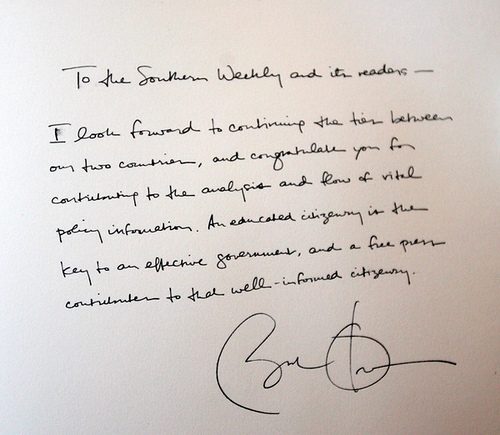 To the Southern Weekly and its readers —
I look forward to continuing the ties between
our two countries, and congratulate you for
contributing to the analysis and flow of vital
policy information. An educated citizenry is the
key to an effective government, and a free press
contributes to that well-informed citizenry.